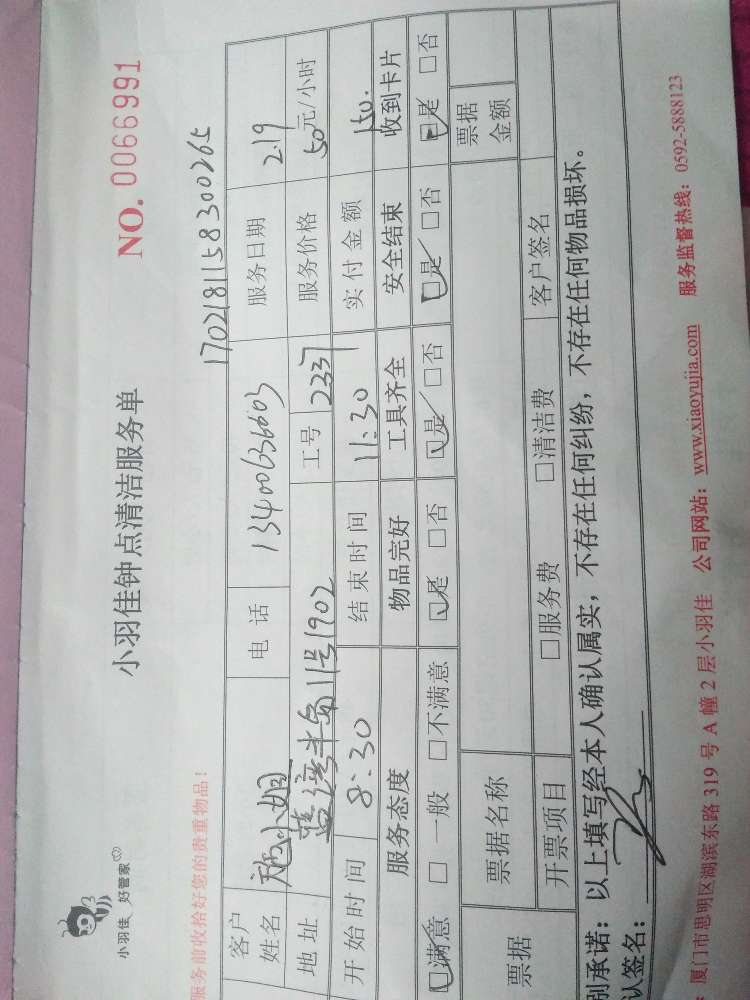 小羽佳 好管家
小羽佳钟点清洁服务单
NO. 0066991
服务前收拾好您的贵重物品！
1702181158300265
客户姓名 小姐 电话 13400636603 服务日期 2.19
地址 蓝湾半岛11号1902 工号 2337 服务价格 50元/小时
开始时间 8:30 结束时间 11:30 实付金额 150.
服务态度 物品完好 工具齐全 安全结束 收到卡片
☑满意 □一般 □不满意 ☑是 □否 ☑是 □否 ☑是 □否 ☑是 □否
票据 票据名称 票据金额
开票项目 □服务费 □清洁费 客户签名
别承诺：以上填写经本人确认属实，不存在任何纠纷，不存在任何物品损坏。
认签名：
厦门市思明区湖滨东路 319 号 A 幢 2 层小羽佳 公司网站：www.xiaoyujia.com 服务监督热线：0592-5888123